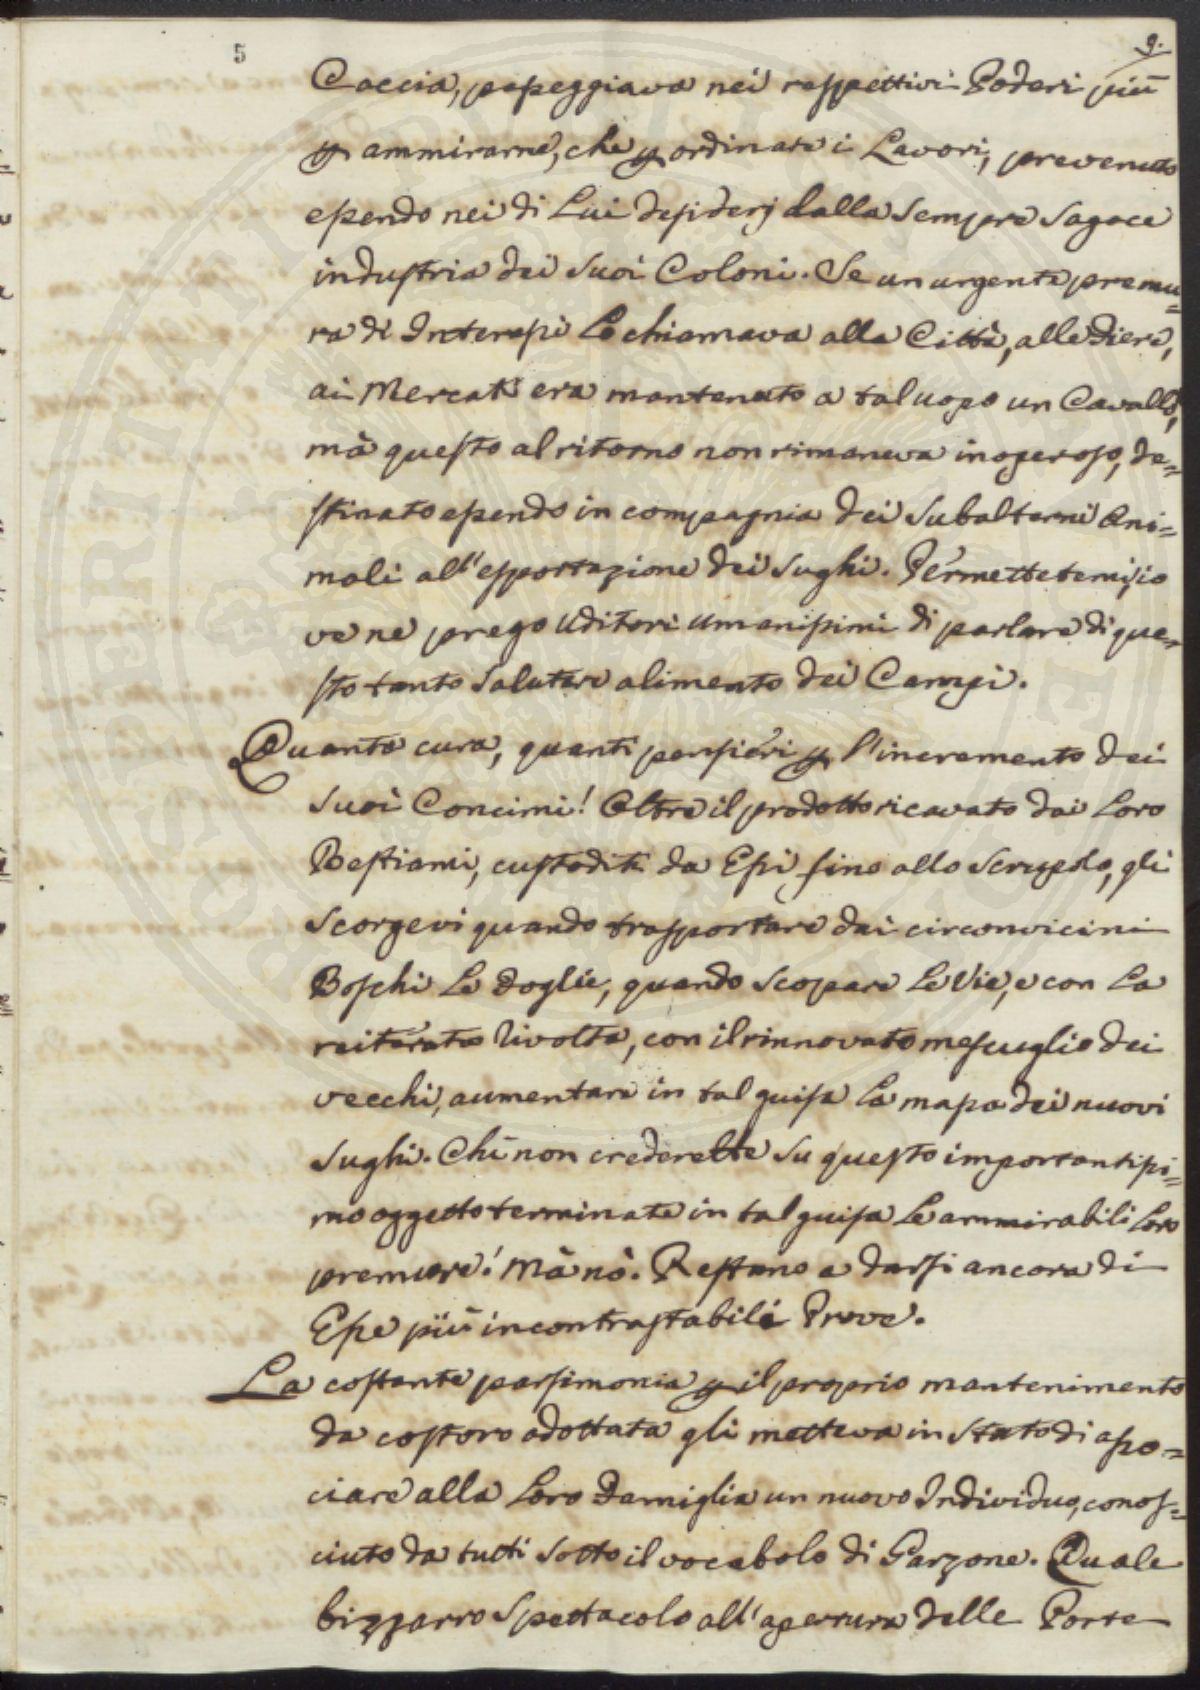 5
9.
Caccia, passeggiava nei respettivi Poderi più
p ammirarne, che p ordinare i Lavori, prevenuto
essendo nei di Lui desiderj dalla sempre sagace
industria dei suoi Coloni. Se un urgente premu=
ra di Interessi Lo chiamava alla Città, alle Fiere,
ai Mercati era mantenuto a tal uopo un Cavallo,
mà questo al ritorno non rimaneva inoperoso, de=
stinato essendo in compagnia dei Subalterni Ani=
mali all'esportazione dei Sughi. Permettetemi, io
ve ne prego Uditori umanissimi di parlare di que=
sto tanto salutare alimento dei Campi.
Quanta cura, quanti pensieri p l'incremento dei
suoi Concimi! Oltre il prodotto ricavato dai Loro
Bestiami, custoditi da Essi fino allo scrupolo, gli
scorgevi quando trasportare dai circonvicini
Boschi Le Foglie, quando scopare Le Vie, e con La
reiterata rivolta, con il rinnovato mescuglio dei
vecchi, aumentare in tal guisa La massa dei nuovi
Sughi. Chi non crederebbe su questo importantissi=
mo oggetto terminate in tal guisa Le ammirabili Loro
premure! Mà nò. Restano a darsi ancora di
Esse più incontrastabili Prove.
La costante parsimonia p il proprio mantenimento
da costoro adottata gli metteva in stato di asso=
ciare alla Loro Famiglia un nuovo Individuo, conos=
ciuto da tutti sotto il vocabolo di Garzone. Quale
bizzarro spettacolo all'apertura delle Porte